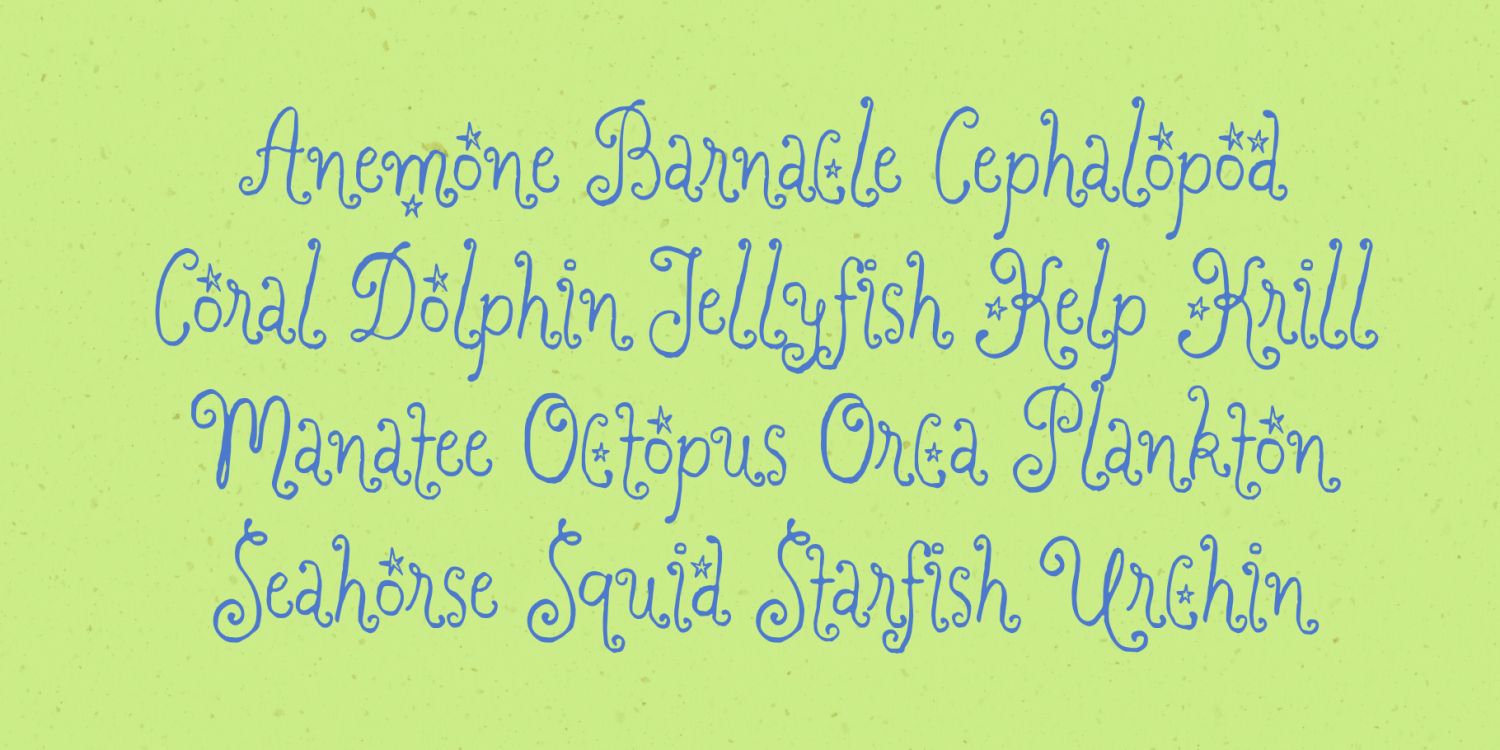 Anemone Barnacle Cephalopod
Coral Dolphin Jellyfish Kelp Krill
Manatee Octopus Orca Plankton
Seahorse Squid Starfish Urchin